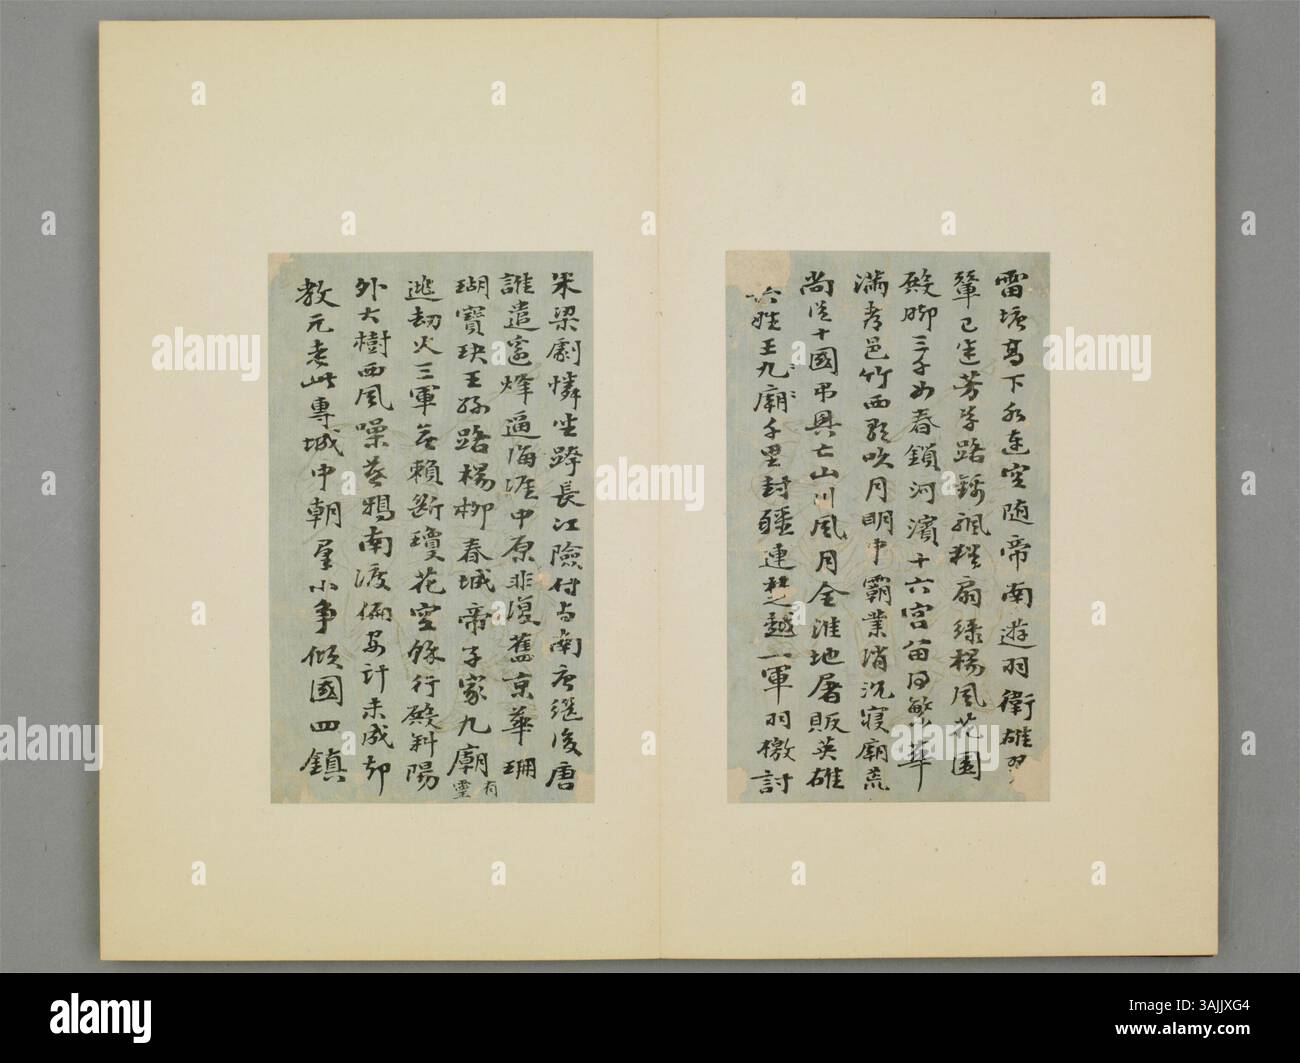 雷塘高下水連空隨帝南遊羽衛雄翠
輦已迷芳草路錦颿猶扇綠楊風花園
殿腳三千女春鎖河濱十六宮笛
滿孝邑竹西歌吹月明中霸業消沉寢廟荒
尚從十國弔興亡山川風月全淮地屠販英雄
六姓王九廟千里封疆連楚越一軍羽檄討
朱梁劇憐坐跨長江險付與南唐繼後唐
誰遣蜜烽逼海涯中原非復舊京華珊
瑚寶玦王孫路楊柳春城帝子家九廟有靈
逃劫火三軍無賴斷瓊花空餘行殿斜陽
外大樹西風噪暮鴉南渡偏安計未成卻
教元老此專城中朝星小爭傾國四鎮
alamy
Image ID: 3AJJXG4
www.alamy.com